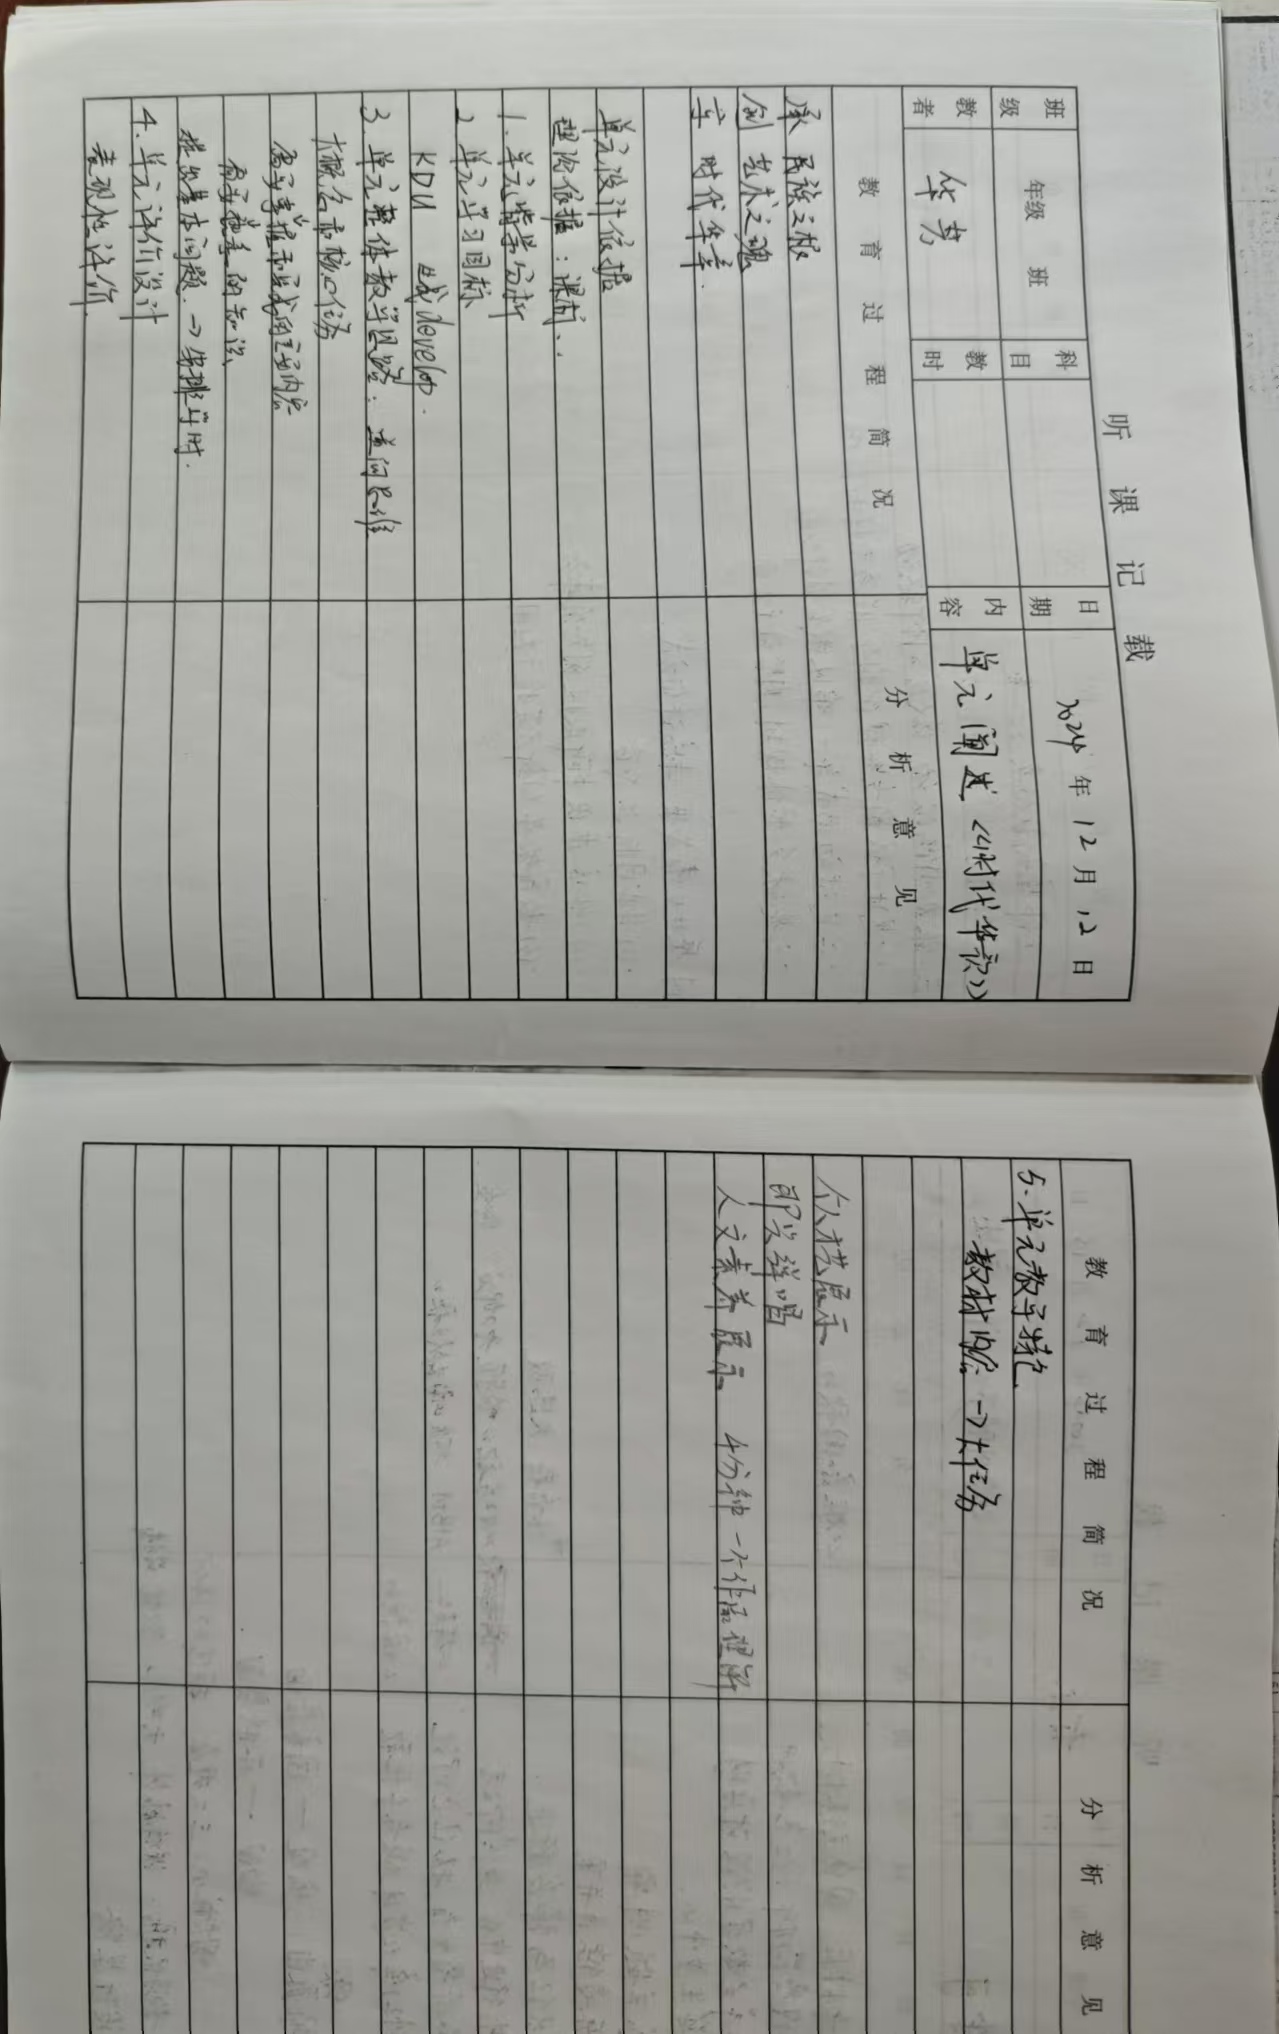 听课记载
班级 年级 班 科目 日期 2024年12月12日
教者 华芳 教时 内容 单元阐述《时代华章》
教育过程简况 分析意见
承 民族之根
创 艺术之魂
立 时代华章.
单元设计依据
理论依据:课标..
1.单元背景分析
2.单元学习目标
KDU develop.
3.单元整体教学思路: 追问思维
大概念和核心任务
需要掌握和完成的主要内容
需要 的知识
提出基本问题.→安排课时.
4.单元评价设计
表现性评价
教育过程简况 分析意见
5.单元教学特色
教材内容→大任务
个人才艺展示
即兴弹唱
人文素养展示 4分钟 一个作品理解